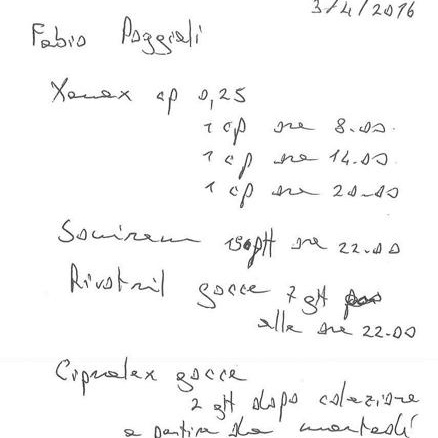 3/4/2016
Fabio Poggiali
Xanax cp 0,25
1 cp ore 8.00
1 cp ore 14.00
1 cp ore 20.00
Souirem 15 gtt ore 22.00
Rivotril gocce 7 gtt
alle ore 22.00
Cipralex gocce
2 gtt dopo colazione
a partire da martedì